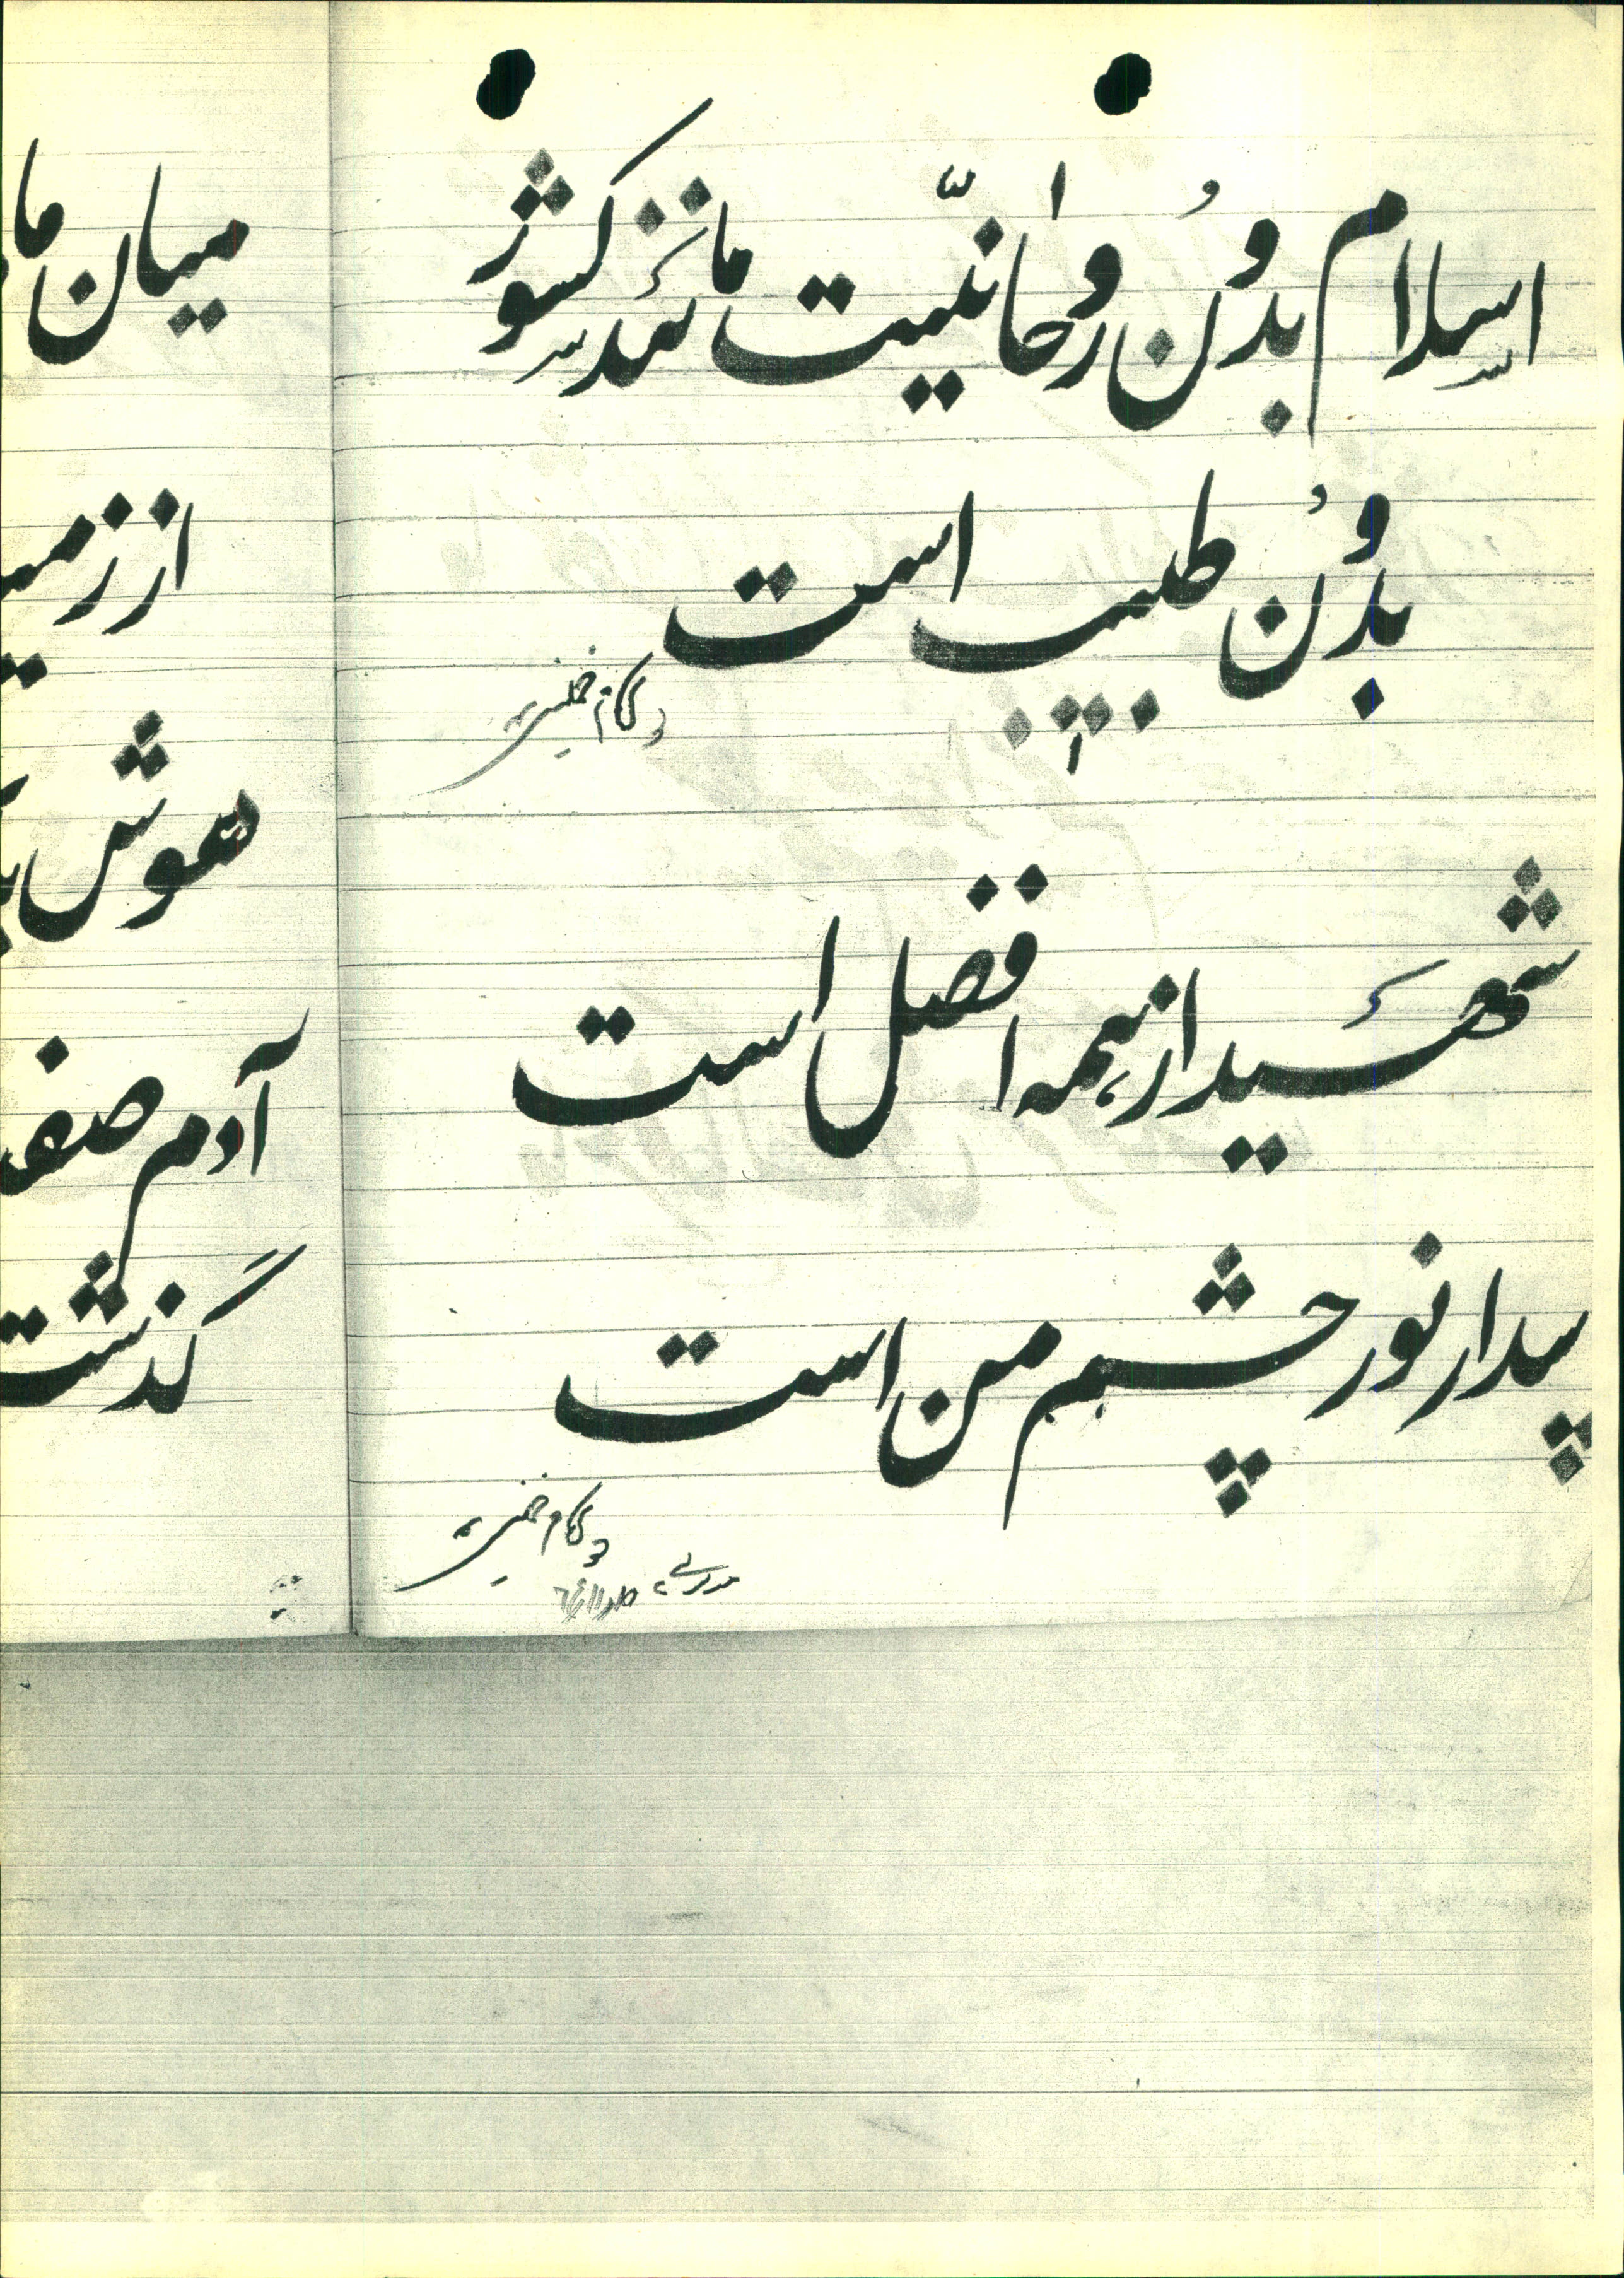 اسلام بدون روحانیّت مانند کشور
بدون طبیب است
امام خمینی
شهید از همه افضل است
پدار نور چشم من است
امام خمینی
میان ما
از زمی
هوش
آدم صف
گذشت